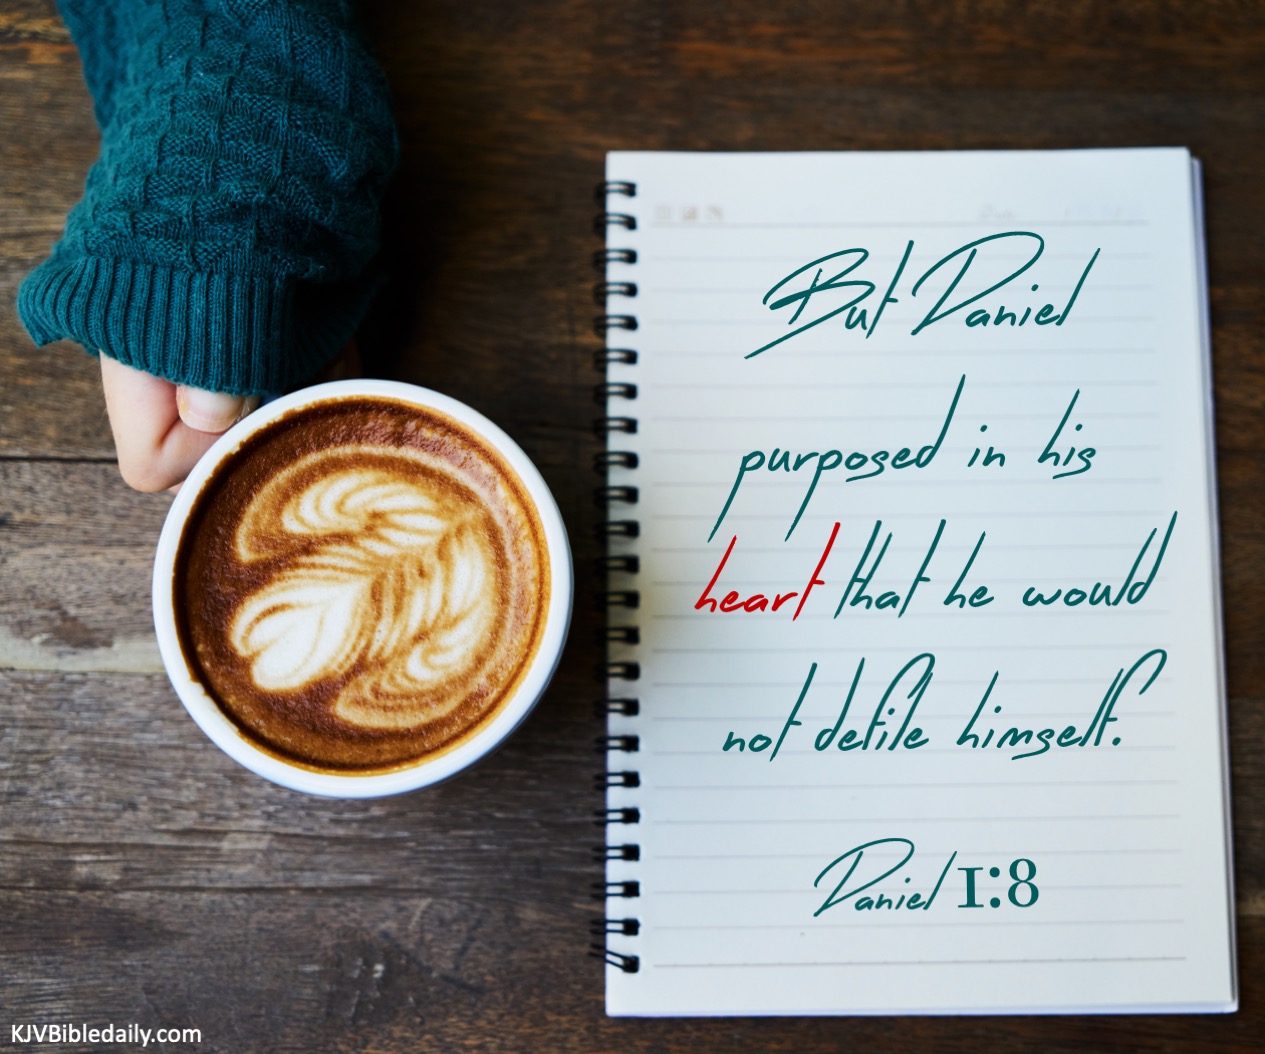 But Daniel
purposed in his
heart that he would
not defile himself.
Daniel 1:8
KJVBibledaily.com